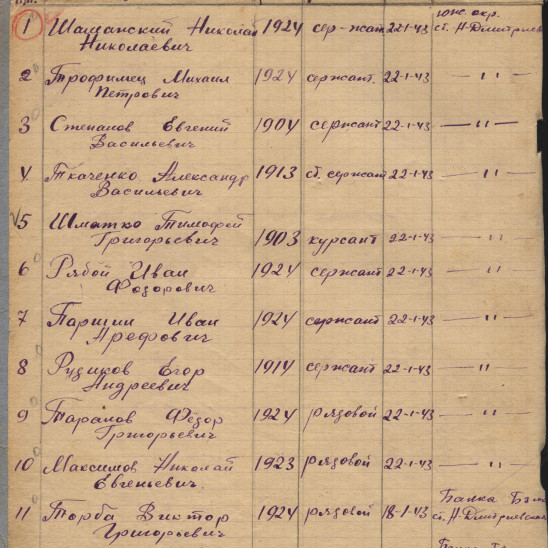 юж. окр.
1 Шащанский Николай 1924 сер-жант 22-1-43 ст. Н-Дмитриевск
Николаевич
2 Трофимец Михаил 1924 сержант. 22-1-43 — " —
Петрович
3 Степанов Евгений 1904 сержант 22-1-43 — " —
Васильевич
4 Ткаченко Александр 1913 ст. сержант 22-1-43 — " —
Васильевич
√5 Шматко Тимофей
Григорьевич 1903 курсант 22-1-43 — " —
6 Рябой Иван 1924 сержант 22-1-43 — " —
Фёдорович
7 Паршин Иван 1924 сержант 22-1-43 — " —
Арефович
8 Рудиков Егор 1914 сержант 22-1-43 — " —
Андреевич
9 Таранов Фёдор 1924 рядовой 22-1-43 — " —
Григорьевич
10 Максимов Николай 1923 рядовой 22-1-43 — " —
Евгеньевич.
Балка
11 Торба Виктор 1924 рядовой 18-1-43 ст. Н-Дмитриевск
Григорьевич